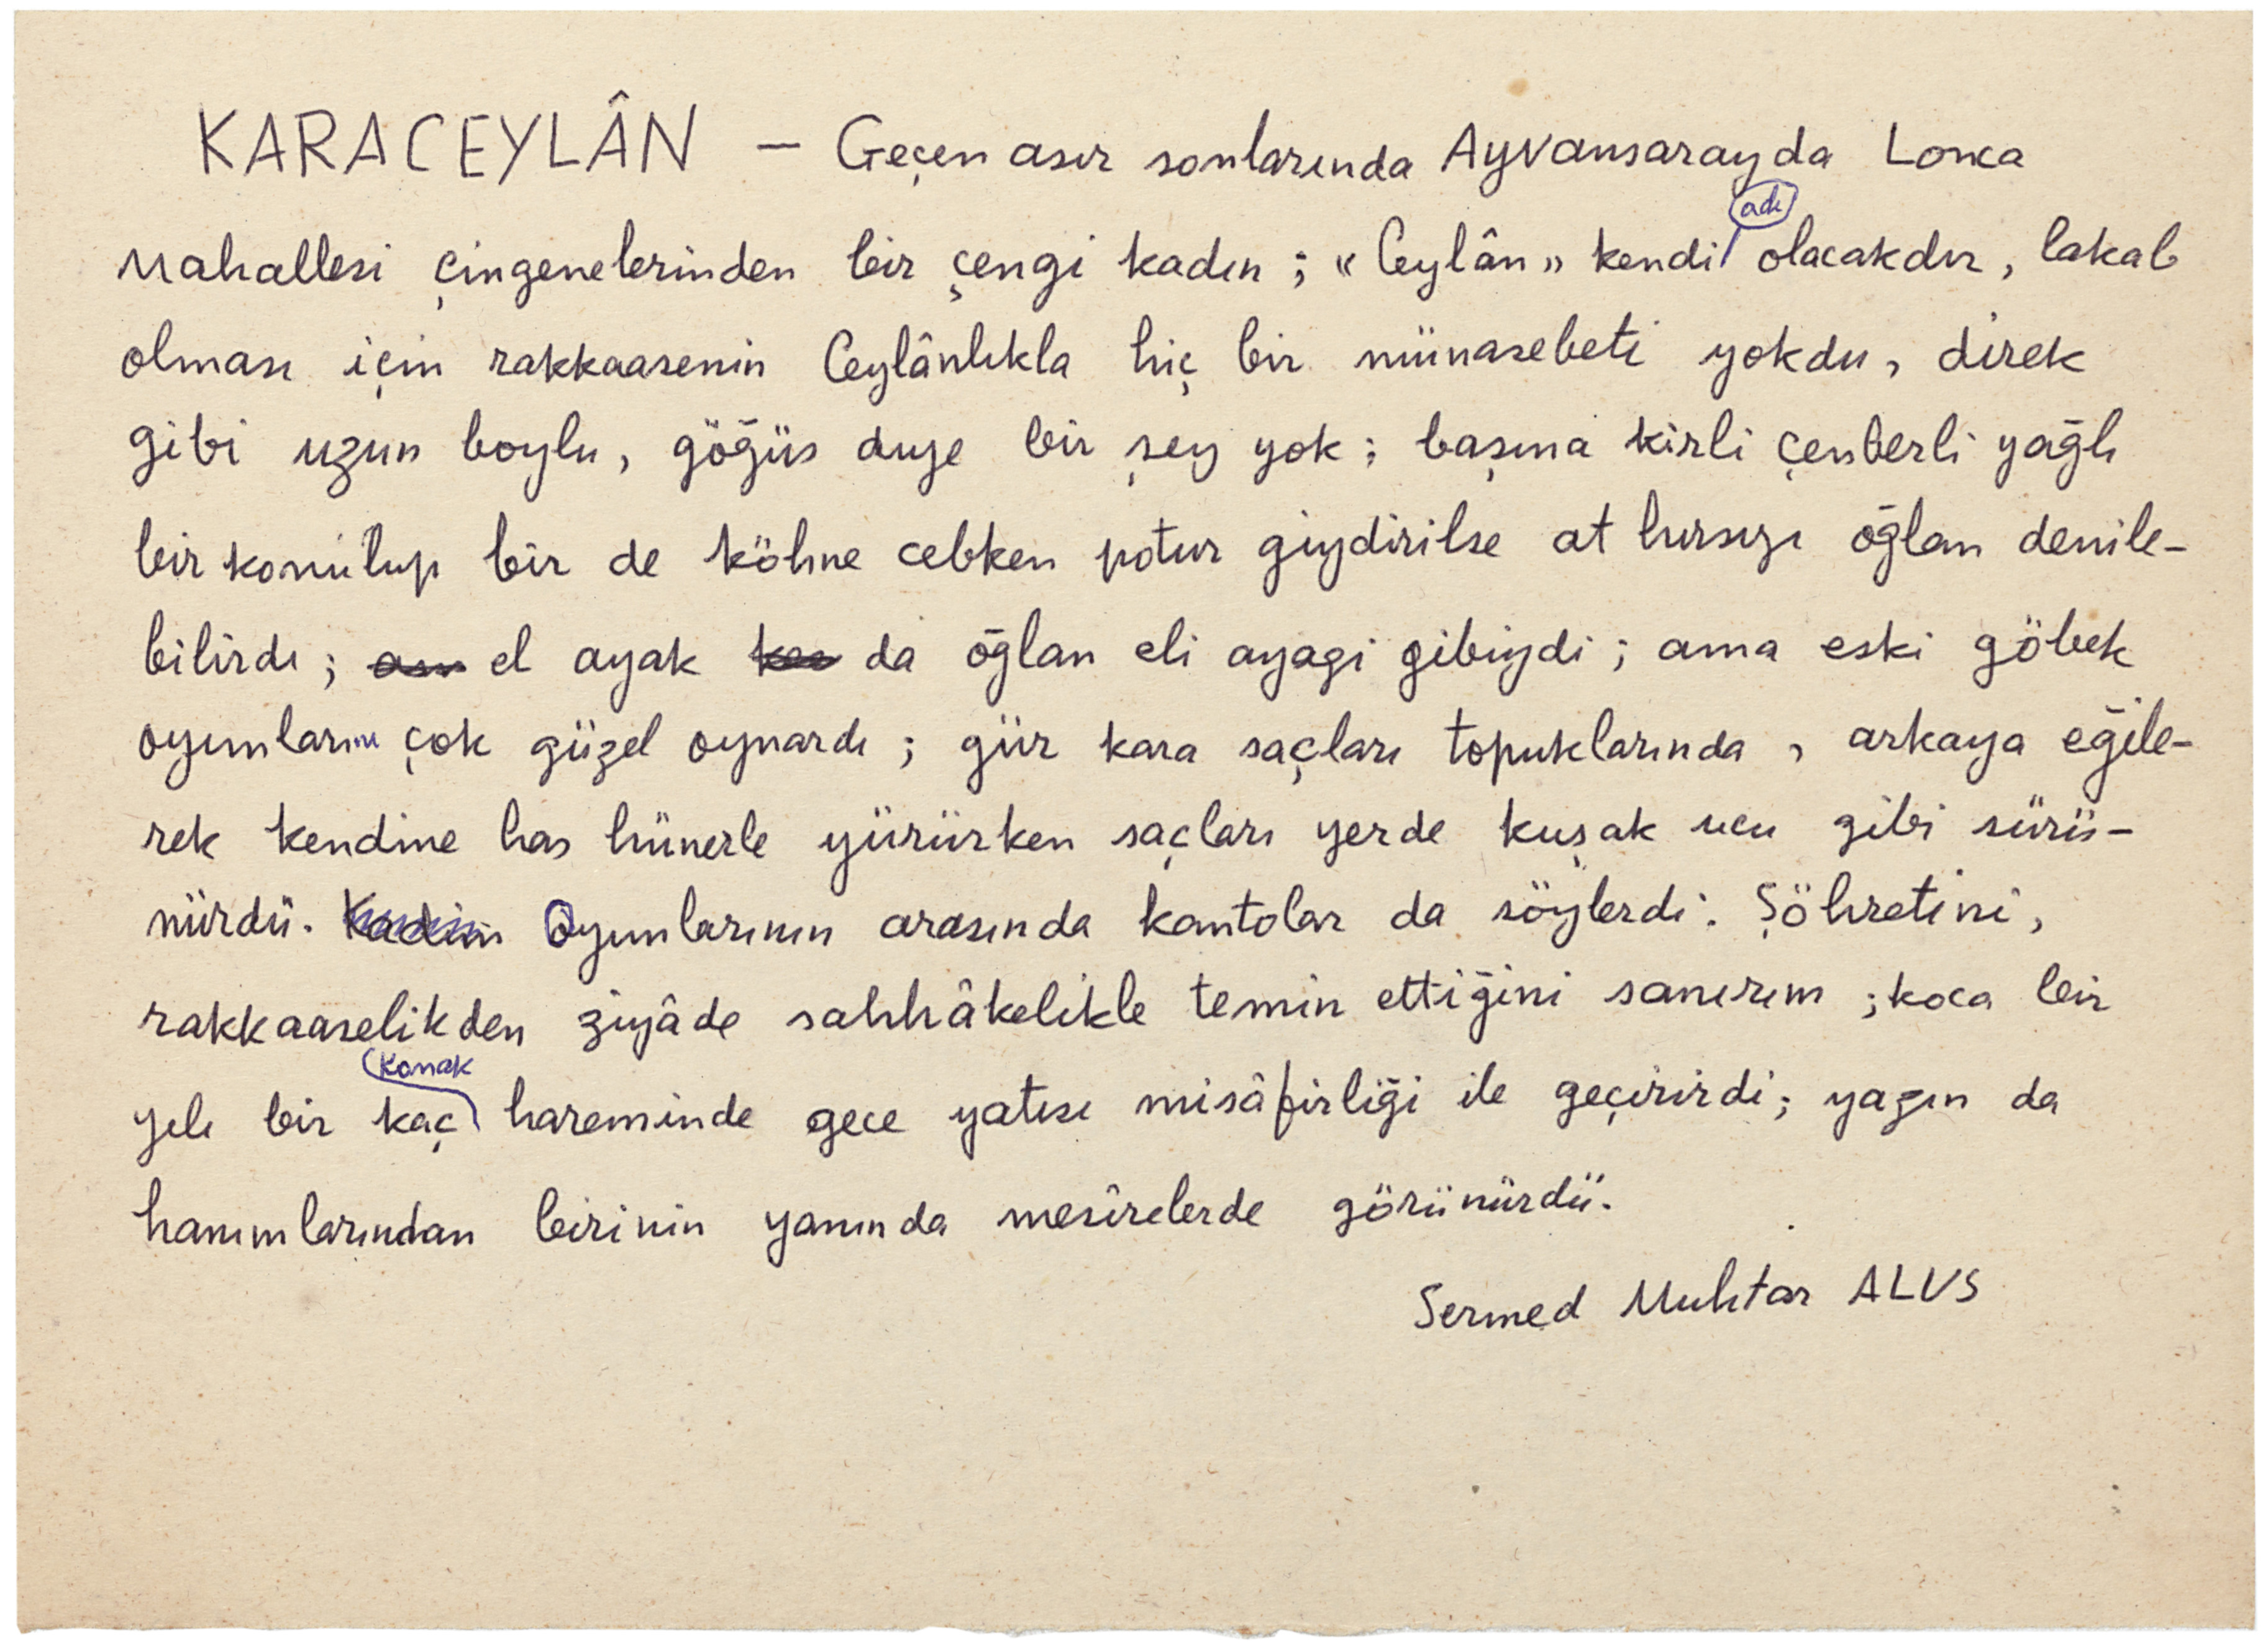 KARACEYLÂN – Geçen asır sonlarında Ayvansarayda Lonca
Mahallesi çingenelerinden bir çengi kadın ; « Ceylân » kendi adı olacakdır, lakab
olması için rakkaasenin Ceylânlıkla hiç bir münasebeti yokdu, direk
gibi uzun boylu, göğüs duye bir şey yok ; başına kirli çenberli yağlı
bir konulup bir de köhne cebken potur giydirilse at hırsızı oğlan denile-
bilirdi ; el ayak da oğlan eli ayagi gibiydi ; ama eski göbek
oyunlarını çok güzel oynardı ; gür kara saçları topuklarında , arkaya eğile-
rek kendine has hünerle yürürken saçları yerde kuşak ucu gibi sürü-
nürdü. Kadim Oyunlarının arasında kantolar da söylerdi. Şöhretini,
rakkaaselikden ziyâde sahhâkelikle temin ettiğini sanırım ; koca bir
yılı bir kaç konak hareminde gece yatısı misâfirliği ile geçirirdi ; yazın da
hanımlarından birinin yanında mesîrelerde görünürdü.
Sermed Muhtar ALUS